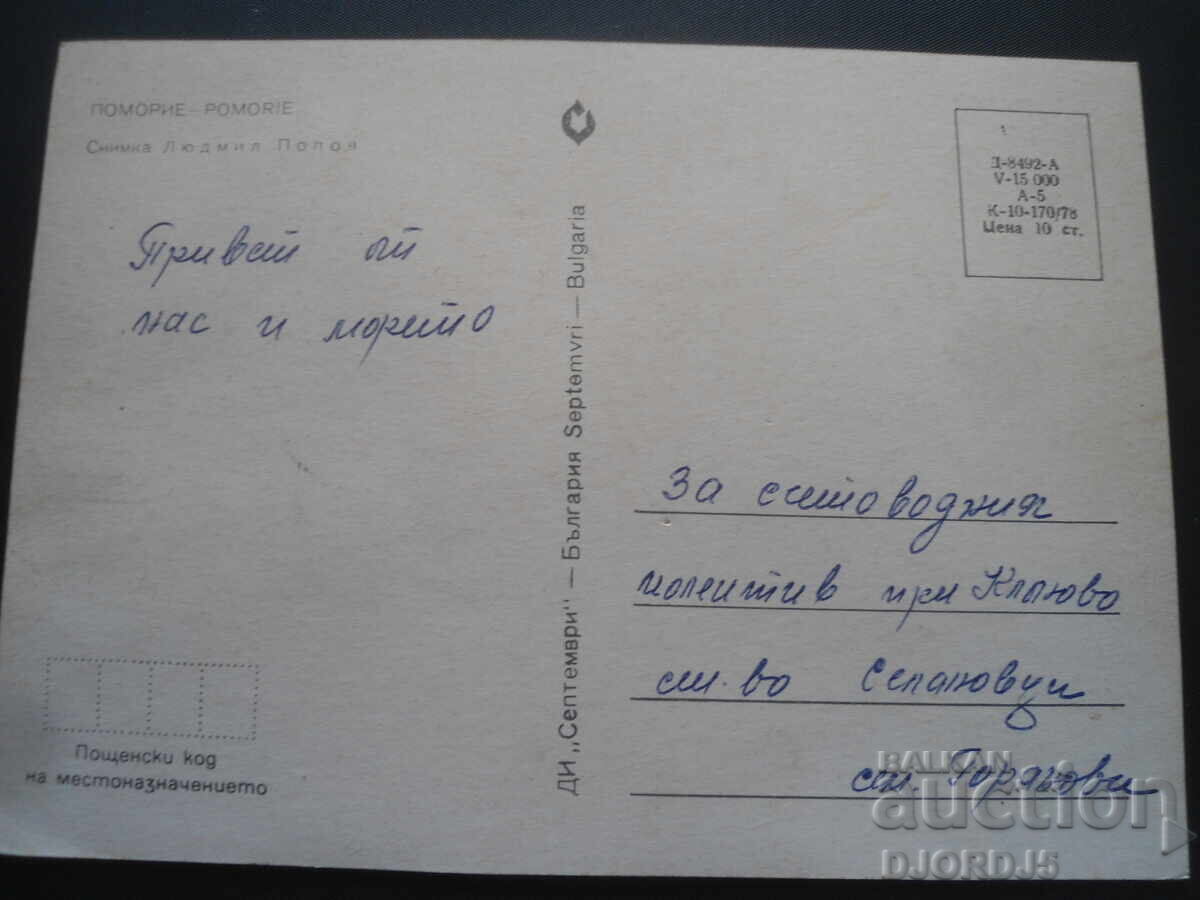 ПОМОРИЕ - POMORIE
Снимка Людмил Попов
Привет от
нас и морето
Пощенски код
на местоназначението
ДИ „Септември" — България Septemvri — Bulgaria
Д-8492-А
V-15 000
А-5
К-10-170/78
Цена 10 ст.
За счетоводния
колектив при
ст. во
ст.
BALKAN
auction
DJORDJ5